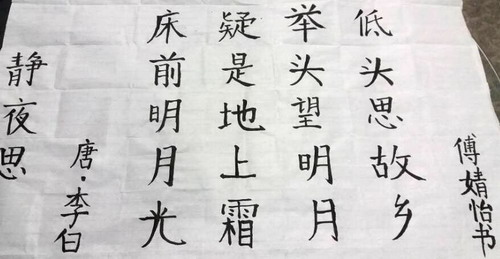 静夜思
唐·李白
床前明月光
疑是地上霜
举头望明月
低头思故乡
傅婧怡书